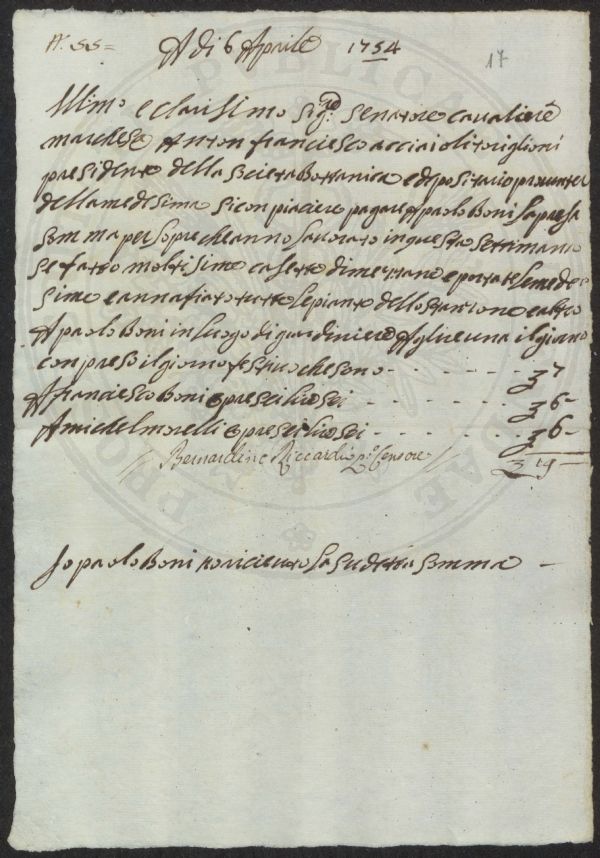 N.° 55=
A di 6 Aprile 1754
17
Illmo e Clarisimo Sig.re Senatore Cavaliere
marchese Anton franciesco acciaioli toriglioni
presidente della Societa Bottanica e depositario
della medesima si conpiacierà pagare A paolo Boni la presa
Somma per sopre che anno lavorato in questa Settimana
Se fatto moltisime casette di mettano e portate le mede
sime e annafiato tutte le piante dello Stanzone e altro
A paolo Boni in luogo di giardiniere A glire una il giorno
conpreso il giorno festivo che sono - - - - - - £ 7
A franciesco Boni opre sei lire sei - - - - - £ 6 -
A michel morelli opre sei lire sei - - - - - £ 6 -
Bernardino Riccardi p.° Censore £ 19 -
Io paolo Boni ho riceuto la sudetta somma -
PUBLICAE
PRO